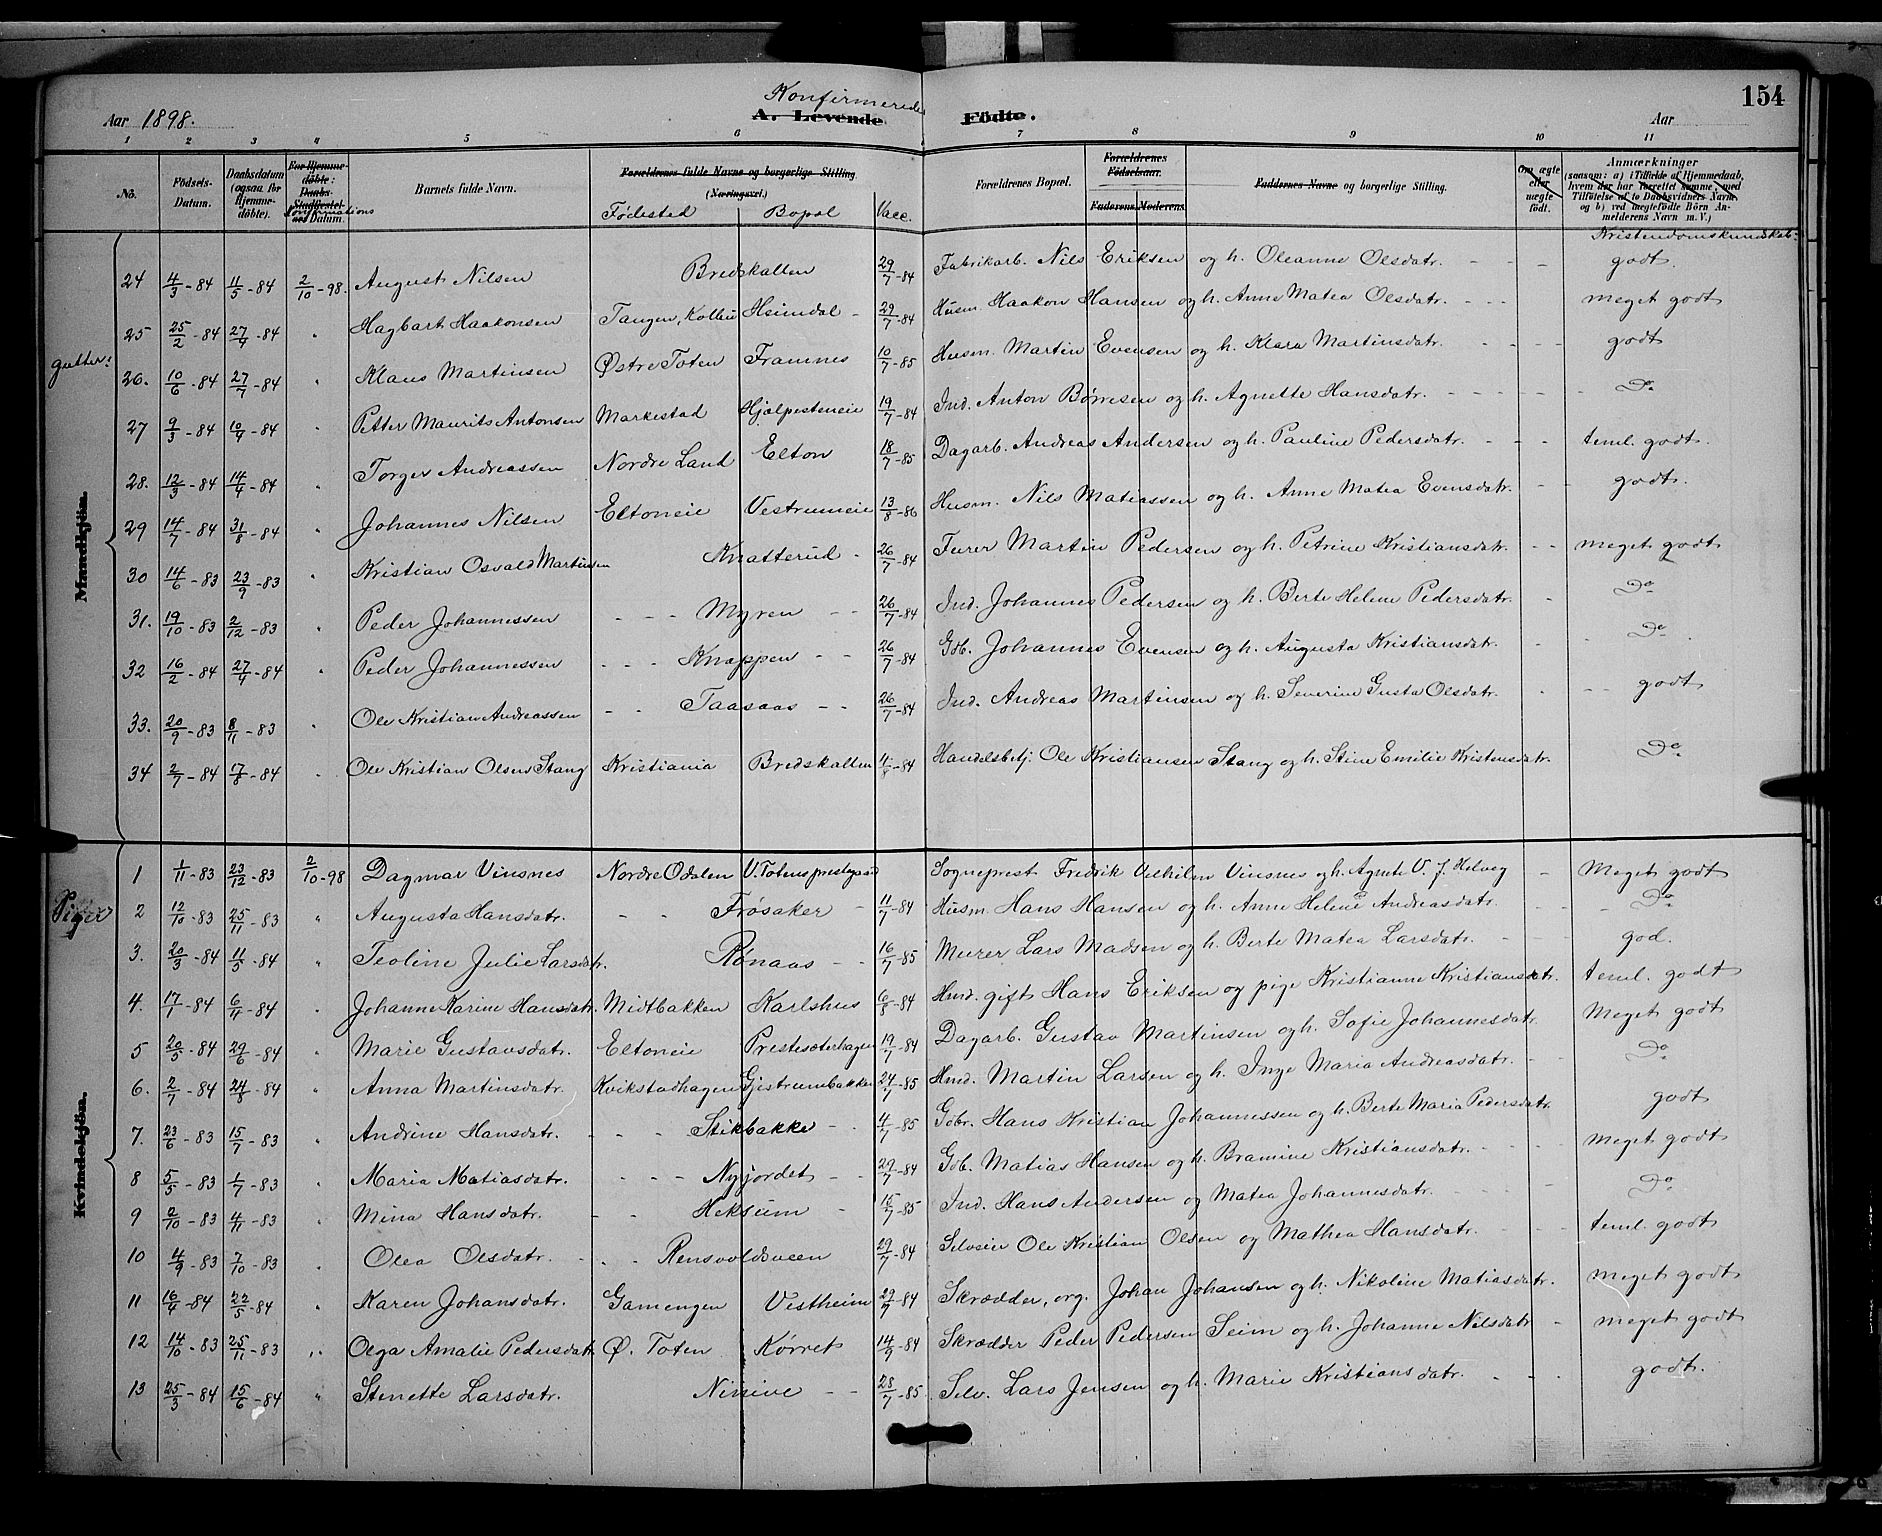 154
Konfirmerede
Aar 1898. A. Levende Födte. Aar
1 2 3 4 5 6 7 8 9 10 11
No. Födsels-Datum. Daabsdatum (ogsaa for Hjemme-döbte). For Hjemme-döbte: Daabs- Stadfæstel-ses Datum. Konfirmations Barnets fulde Navn. Forældrenes fulde Navne og borgerlige Stilling (Næringsvei.) Fødested Bopæl Vacc. Forældrenes Bopæl. Forældrenes Födselsaar. Faderens. Moderens. Faddernes Navne og borgerlige Stilling. Om ægte eller uægte födt. Anmærkninger (saasom: a) i Tilfælde af Hjemmedaab, hvem der har forrettet samme, med Tilföielse af to Daabsvidners Navne, og b) ved uægtefödte Börn An-melderens Navn m. V.)
Kristendomskundskab:
gutter:
Mandkjön.
24 4/3-84 11/5-84 2/10-98. August Nilsen Bredskallen 29/7-84 Fabrikarb. Nils Eriksen og h. Oleanne Olsdatr. - - - godt.
25 25/2-84 27/4-84 " Hagbart Haakonsen Tangen, Kolbu Heimdal - 29/7-84 Husm. Haakon Hansen og h. Anne Matea Olsdatr. - - - meget godt
26. 10/6-84 27/7-84 " Klaus Martinsen Østre Toten Framnes 10/7-85 Husm. Martin Evensen og h. Klara Martinsdatr. - - - - godt
27 9/3-84 10/4-84 " Petter Maurits Antonsen Markestad Hjelpesteneie 19/7-84 Ind. Anton Børresen og h. Agnette Hansdatr. - - - - - Do
28. 12/3-84 14/4-84 " Torger Andreassen Nordre Land Elton 18/7-85 Dagarb. Andreas Andersen og h. Pauline Pedersdatr. - - - teml. godt.
29 14/7-84 31/8-84 " Johannes Nilsen Eltoneie Vestrumeie 13/8-86 Husm. Nils Matiassen og h. Anne Matea Evensdatr. - - godt.
30 14/6-83 23/9-83 " Kristian Osvald Martinsen Knatterud - 26/7-84 Furer Martin Pedersen og h. Petrine Kristiansdatr. - - meget godt
31. 19/10-83 2/12-83 " Peder Johannessen - - - Myren - - 26/7-84 Ind. Johannes Pedersen og h. Berte Helene Pedersdatr. - Do
32 16/2-84 27/4-84 " Peder Johannessen - - - Knappen - - 26/7-84 Gdb. Johannes Evensen og h. Augusta Kristiansdatr. - - Do.
33. 20/9-83 8/11-83 " Ole Kristian Andreassen - - Taasaas - - 26/7-84 Ind. Andreas Martinsen og h. Severine Gusta Olsdatr. - - - godt
34 2/7-84 17/8-84 " Ole Kristian Olsen Stang Kristiania Bredskallen 11/8-84 Handelsbetj. Ole Kristiansen Stang og h. Stine Emilie Kristensdatr. Do.
Piger
Kvindekjön.
1 1/11-83 23/12-83 2/10-98 Dagmar Vinsnes Nordre Odalen V. Totens prestegaard Sogneprest Fredrik Vilhelm Vinsnes og h. Agnete V. J. Helveg - Meget godt
2 12/10-83 25/11-83 " Augusta Hansdatr. - - Frøsaker - 11/7-84 Husm. Hans Hansen og h. Anne Helene Andreasdatr. - - - Do
3. 20/3-84 11/5-84 " Teoline Julie Larsdatr. Rønaas - - 16/7-85 Murer Lars Madsen og h. Berte Matea Larsdatr. - - - god.
4. 17/1-84 6/11-84 " Johanne Karine Hansdatr. Midtbakken Karlshus 6/8-84 Hmd. gift Hans Eriksen og pige Kristianne Kristiansdatr. teml. godt
5 20/5-84 29/6-84 " Marie Gustavsdatr. Eltoneie Prestesæterhagen 19/7-84 Dagarb. Gustav Martinsen og h. Sofie Johannesdatr. Meget godt
6. 2/7-84 24/8-84 " Anna Martinsdatr. Kvikstadhagen Gjestrumbakken 24/7-85 Hmd. Martin Larsen og h. Inge Maria Andreasdatr. - - Do
7. 23/6-83 15/7-83 " Andrine Hansdatr. - - Stikbakke - - 4/7-85 Gdbr. Hans Kristian Johannessen og h. Berte Maria Pedersdatr. godt
8 5/5-83 1/7-83 " Maria Matiasdatr. - - - Nyjordet - - 29/7-84 Gdb. Matias Hansen og h. Bramine Kristiansdatr. - - - meget godt
9 2/10-83 4/11-83 " Mina Hansdatr. - - Heksum - 15/7-85 Ind. Hans Andersen og Matea Johannesdatr. - - - - Do
10 4/9-83 7/10-83 " Olea Olsdatr. - - Rensvoldsveen 29/7-84 Selveier Ole Kristian Olsen og Mathea Hansdatr. - - - teml. godt
11 16/4-84 22/5-84 " Karen Johansdatr. Gamengen Vestheim 29/7-84 Skrædder, org. Johan Johansen og h. Nikoline Matiasdatr. - meget godt
12 14/10-83 25/11-83 " Olga Amalie Pedersdatr Ø. Toten Kørret 14/9-84 Skrædder Peder Pedersen Seim og h. Johanne Nilsdatr - meget godt
13 25/3-84 15/6-84 " Stenette Larsdatr. Ninive - - 28/7-85 Selv. Lars Jensen og h. Marie Kristiansdatr. - - - godt.